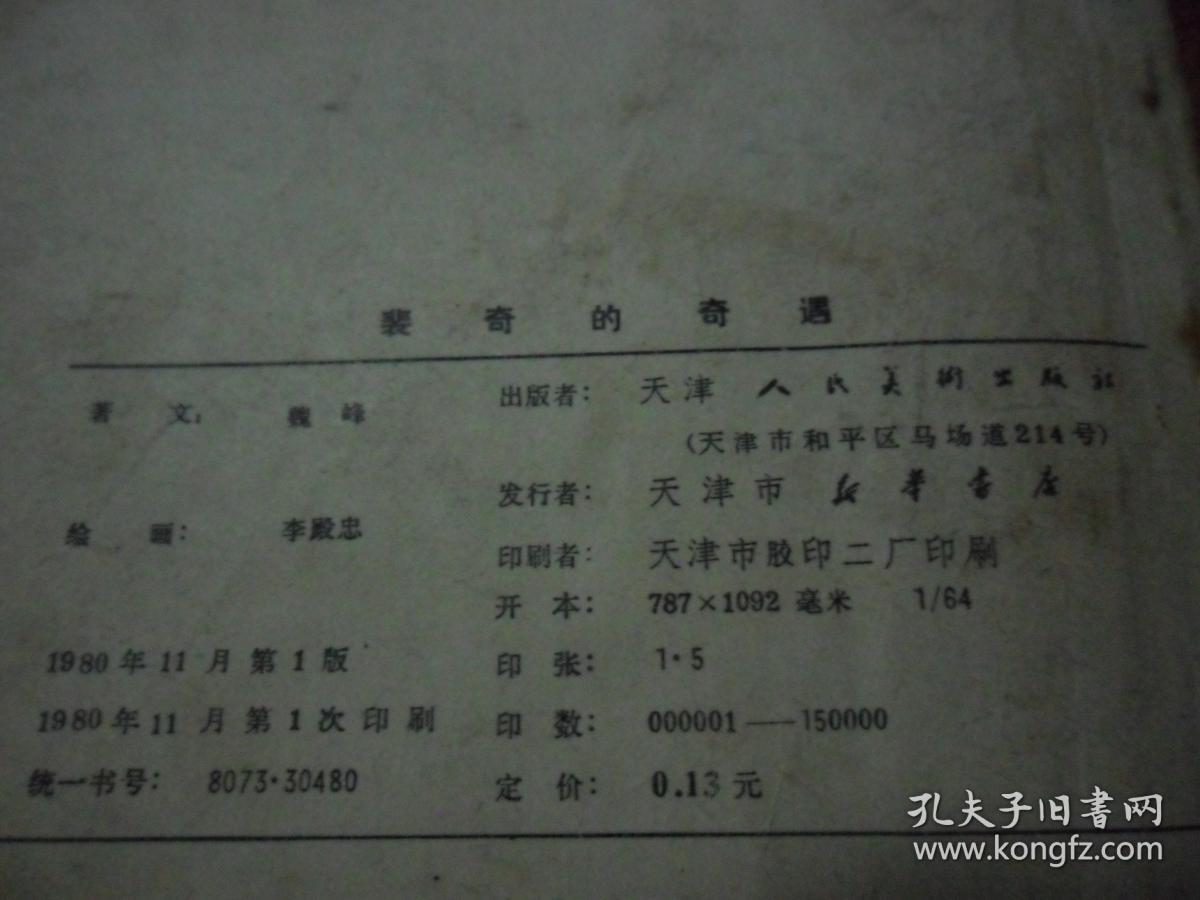 裴奇的奇遇
著 文： 魏 峰
绘 画： 李殿忠
1980年11月第1版
1980年11月第1次印刷
统一书号： 8073·30480
出版者： 天津人民美術出版社
(天津市和平区马场道214号)
发行者： 天津市新华书店
印刷者： 天津市胶印二厂印刷
开 本： 787×1092 毫米 1/64
印 张： 1·5
印 数： 000001——150000
定 价： 0.13元
孔夫子旧书网
www.kongfz.com